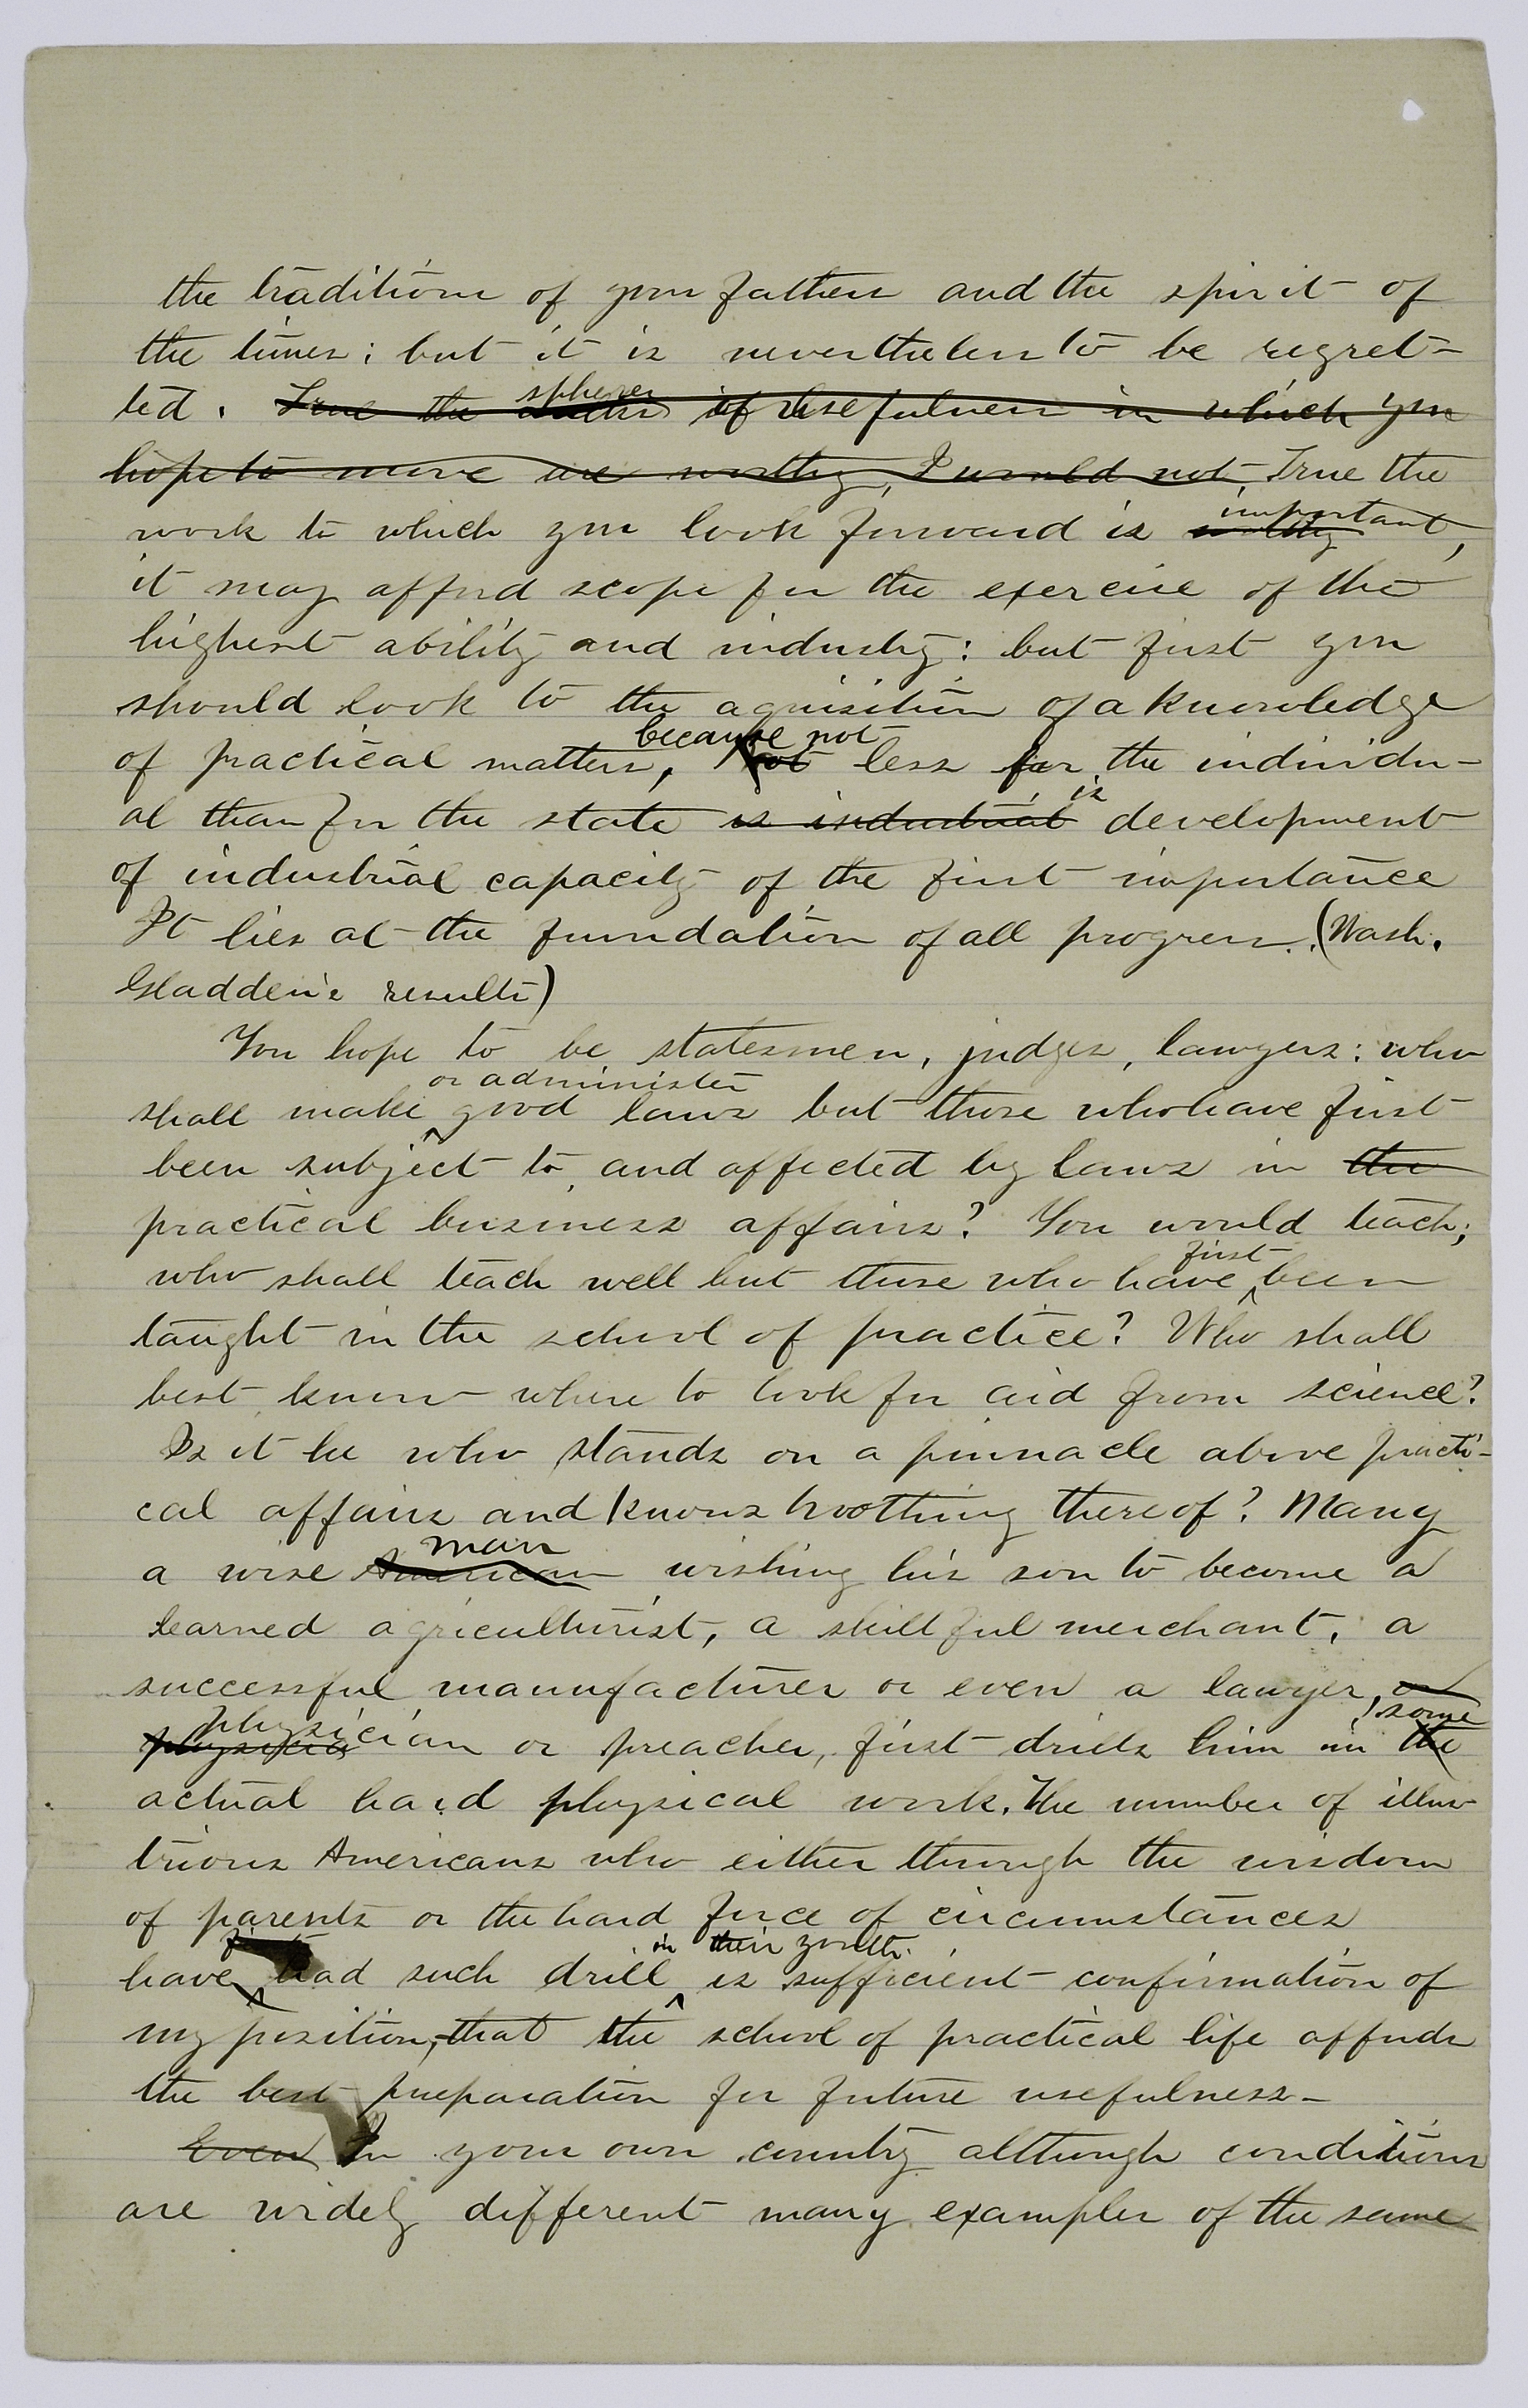 the traditions of your fathers and the spirit of
the times; but it is nevertheless to be regret-
ted. True the spheres of usefulness in which you
hope to move are worthy, I would not, True the
work to which you look forward is worthy important,
it may afford scope for the exercise of the
highest ability and industry: but first you
should look to the aquisition of a knowledge
of practical matters, because not not less for the individu-
al than for the state is industrial is development
of industrial capacity of the first importance
It lies at the foundation of all progress. (Wash.
Gladden's results)
You hope to be statesmen, judges, lawyers: who
shall make or administer good laws but those who have first
been subject to, and affected by laws in the
practical business affairs? You would teach;
who shall teach well but those who have first been
taught in the school of practice? Who shall
best know where to look for aid from science?
Is it he who stands on a pinnacle above practi-
cal affairs and knows noothing thereof? Many
a wise American man wishing his son to become a
learned agriculturist, a skillful merchant, a
successful manufacturer or even a lawyer, or
physician or preacher, first drills him in the some
actual hard physical work. The number of illus-
trious Americans who either through the wisdom
of parents or the hard force of circumstances
have first had such drill in their youth is sufficient confirmation of
my position, that the school of practical life affords
the best preparation for future usefulness-
Even In your own country although conditions
are widely different many examples of the same